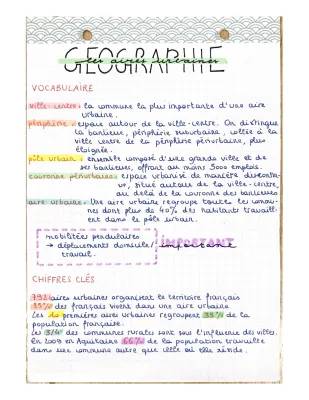 GEOGRAPHIE
les aires urbaines
VOCABULAIRE
ville-centre : la commune la plus importante d'une aire
urbaine.
périphérie : espace autour de la ville-centre. On distingue
la banlieue, périphérie suburbaine, collée à la
ville centre de la périphérie périurbaine, plus
éloignée.
pôle urbain : ensemble composé d'une grande ville et de
ses banlieues, offrant au moins 5000 emplois.
couronne périurbaine : espace urbanisé de manière discontinu,
situé autour de la ville-centre,
au delà de la couronne des banlieues
aire urbaine : Une aire urbaine regroupe toutes les communes
dont plus de 40% des habitants travaillent
dans le pôle urbain.
mobilités pendulaires
→ déplacements domicile/
travail.
IMPORTANT
importante
CHIFFRES CLÉS
792 aires urbaines organisent le territoire français
85% des français vivent dans une aire urbaine
Les 10 premières aires urbaines regroupent 38% de la
population française.
Les 3/4 des communes rurales sont sous l'influence des villes.
En 2009 en Aquitaine 66% de la population travaille
dans une commune autre que celle où elle réside.